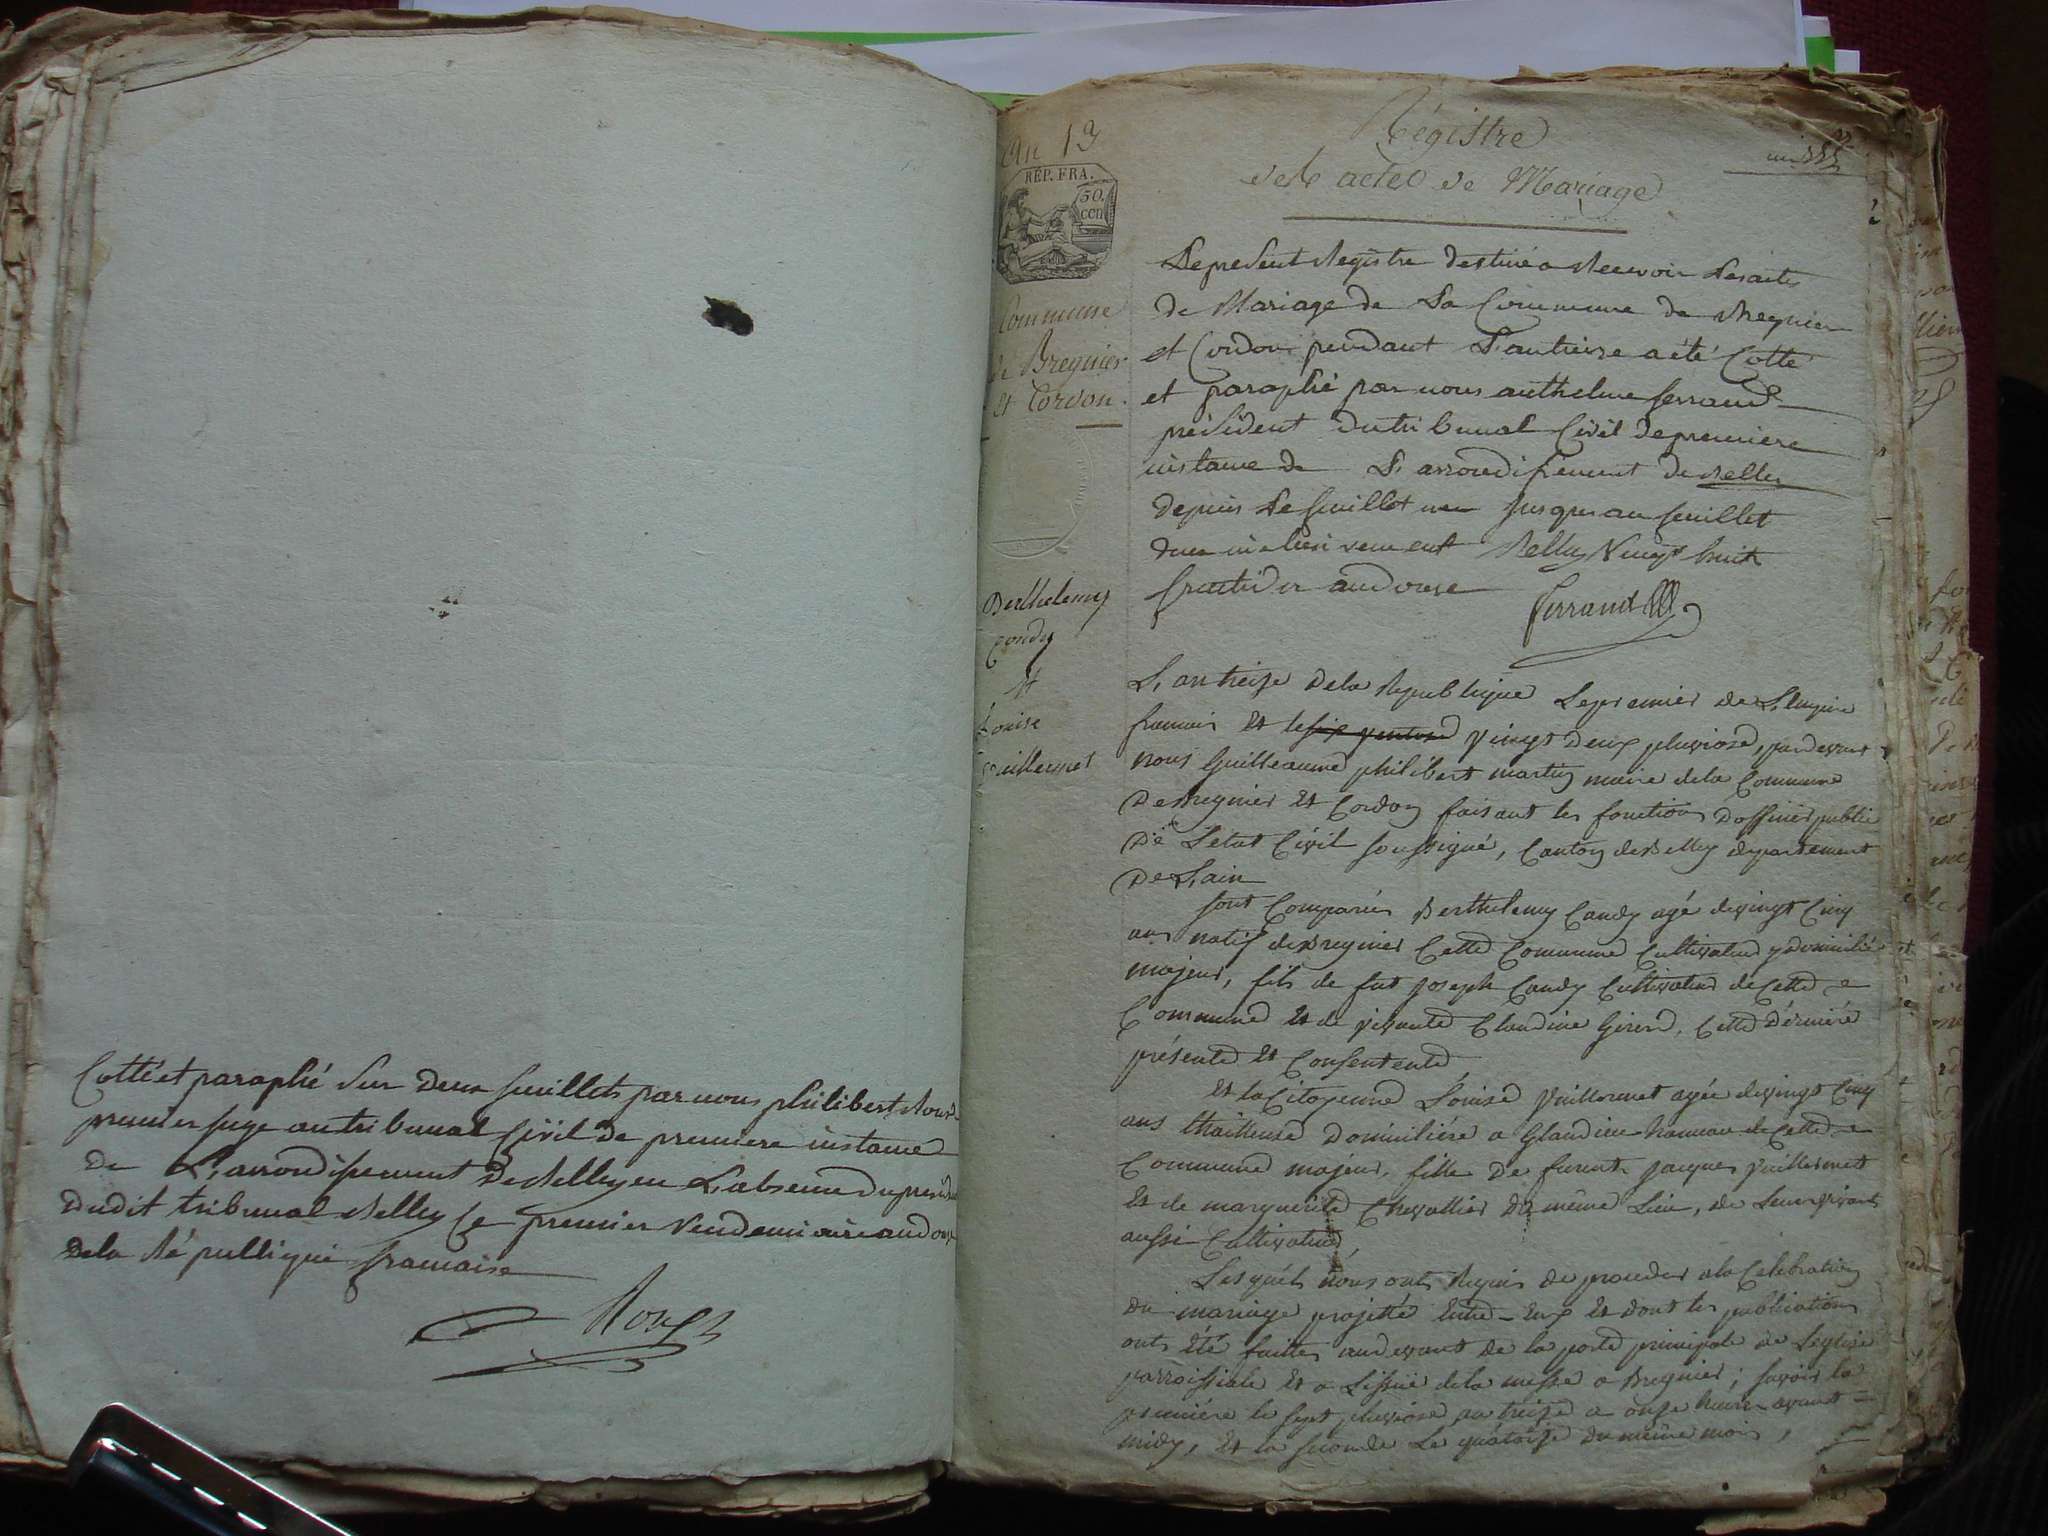 Cotté et paraphé sur deux feuillets par nous philibert Roux
premier juge au tribunal Civil de premiere instance
de L'arrondissement De Belley en L'absence du president
dudit tribunal Belley Le premier vendemiaire an douze
de la République francaise
An 13
RÉP. FRA.
50.
cen
Commune
de Bregnier
et Cordon.
Régistre
des actes de Mariage
un
Le present Registre destiné a Recevoir Les actes
de Mariage de La Commune de Bregnier
et Cordon pendant L'an treize a été Cotté
et paraphé par nous anthelme ferrand
président du tribunal Civil de premiere
instance de L'arrondissement de Belley
depuis Le feuillet un jusques au feuillet
deux inclusivement Belley vingt huit
fructidor an douze
ferrand
Berthelemy
Candy
et
Louise
Vuillermet
L'an treize De la Republique Le premier de L'Empire
francais et le six ventose vingt deux pluviose, pardevant
nous Guilleaume philibert martin maire de la Commune
De Bregnier et Cordon faisant les fonctions d'officier public
De L'etat Civil soussigné, Canton de Belley departement
De L'ain
sont Comparus Berthelemy Candy agé de vingt Cinq
ans natif de Bregnier Cette Commune Cultivateur y domicilié
majeur, fils de fut joseph Candy Cultivateur de Cette
Commune et de vivante Claudine Girerd, Cette derniére
présente et Consentente
et la Citoyenne Louise Vuillermet agée de vingt Cinq
ans thailleuse Domiciliée a Glandieu hameau de Cette
Commune majeur, fille De furent jacques Vuillermet
et de marguerite Chevallier du même Lieu, de Leur vivant
aussi Cultivateur,
Lesquels nous ont Requis de proceder a la Celebration
du mariage projetté Entre-Eux et dont les publications
ont été faittes au devant de la porte principale de L'eglise
parroissiale et a L'issüe de la messe a Bregnier; savoir la
premiére le sept pluviose an treize a onze heures avant
midy, et la seconde Le quatorze du même mois,